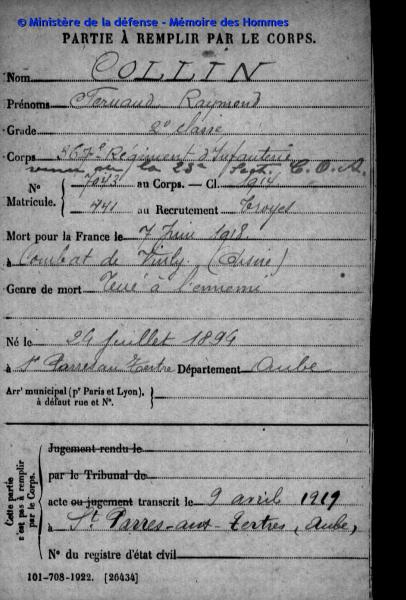 © Ministère de la défense - Mémoire des Hommes
PARTIE À REMPLIR PAR LE CORPS.
Nom COLLIN
Prénoms Fernand Raymond
Grade 2e classe
Corps Régiment d'Infanterie
venu de la 23e Sectn C. O. A.
No 7043 au Corps. — Cl. 1914
Matricule. 441 au Recrutement Troyes
Mort pour la France le 7 Juin 1918
à Combat de (Aisne)
Genre de mort Tué à l'ennemi
Né le 24 Juillet 1894
à St Parres au Tertre Département Aube
Arrt municipal (pr Paris et Lyon),
à défaut rue et No.
Cette partie n'est pas à remplir par le Corps.
Jugement rendu le
par le Tribunal de
acte ou jugement transcrit le 9 avril 1919
à St Parres-aux-Tertres, Aube,
No du registre d'état civil
101-708-1922. [26434]